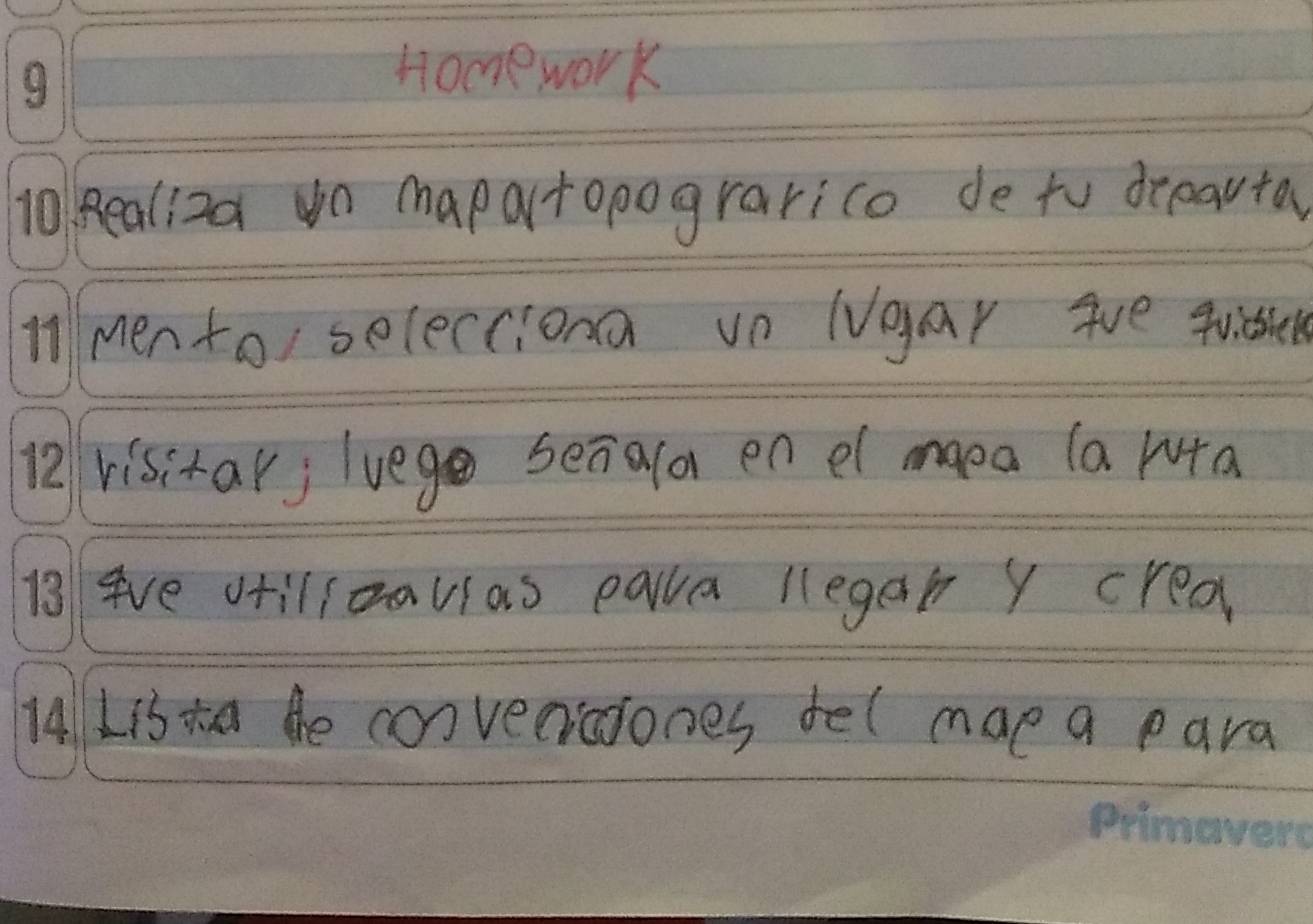 9 Homework
10 Realiza un mapa topograrico de tu departa
11 mento, selecciona un lugar que quisiera
12 visitar; luego señala en el mapa la ruta
13 que utilizarias para llegar y crea
14 Lista de convenciones del mapa para
Primavera